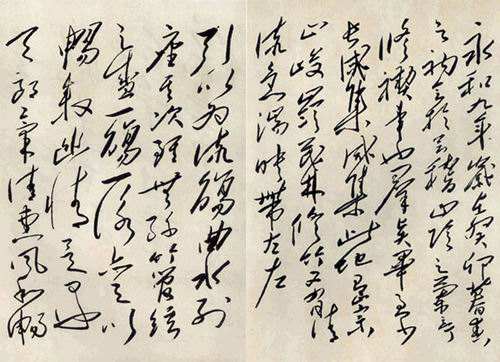 永和九年歲在癸暮春
之初會於會稽山陰之蘭亭
修禊事也羣賢畢至少
長咸集咸集此地崇
山峻嶺茂林修竹又有清
流急湍映帶左右
引以為流觴曲水列
座其次雖無絲竹管絃
之盛一觴一詠亦足以
暢叙幽情是日也
天朗氣清惠風和暢